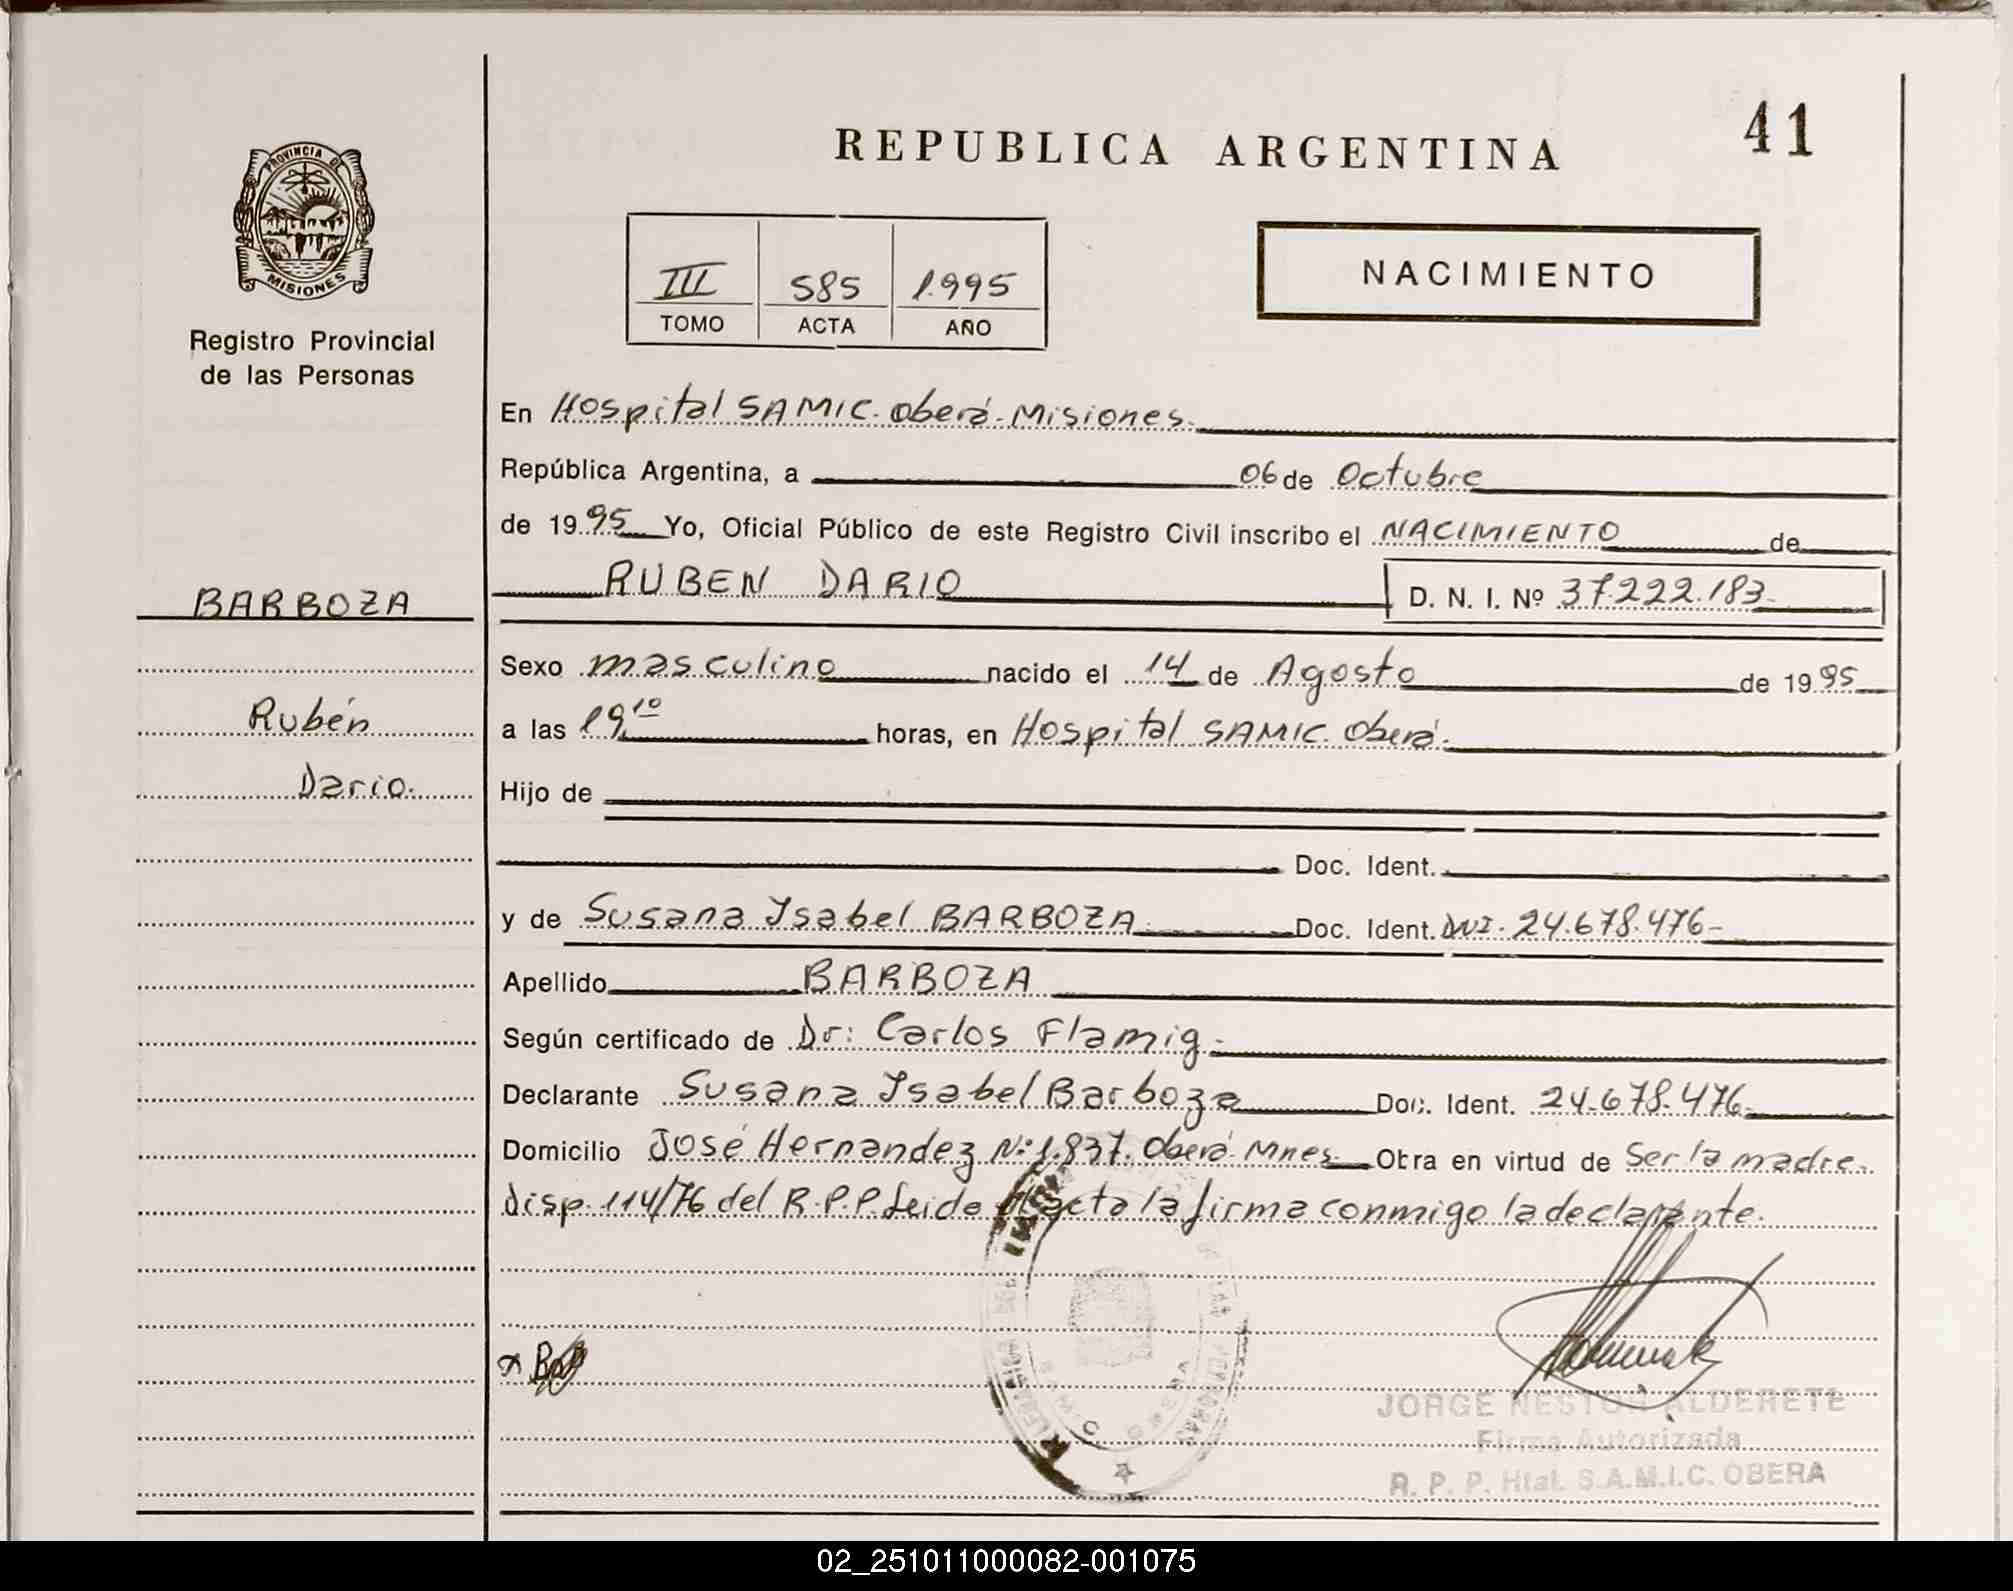 REPUBLICA ARGENTINA
41
PROVINCIA DE
MISIONES
Registro Provincial
de las Personas
III 585 1.995
TOMO ACTA AÑO
NACIMIENTO
En Hospital SAMIC. Oberá-Misiones.
República Argentina, a 06 de Octubre
de 1995 Yo, Oficial Público de este Registro Civil inscribo el NACIMIENTO de
RUBEN DARIO D. N. I. Nº 37.222.183-
BARBOZA
Rubén
Dario.
Sexo masculino nacido el 14 de Agosto de 1995
a las 19,10 horas, en Hospital SAMIC. Oberá.
Hijo de
Doc. Ident.
y de Susana Ysabel BARBOZA. Doc. Ident. DNI. 24.678.476-
Apellido BARBOZA
Según certificado de Dr: Carlos Flamig.
Declarante Susana Ysabel Barboza Doc. Ident. 24.678.476-
Domicilio José Hernandez Nº 1.837. Oberá-Mnes. Obra en virtud de Ser la madre.
Disp. 114/76 del R.P.P. Leida el acta la firma conmigo la declarante.
JORGE NESTOR ALDERETE
Firma Autorizada
R. P. P. Htal. S.A.M.I.C. OBERA
02_251011000082-001075